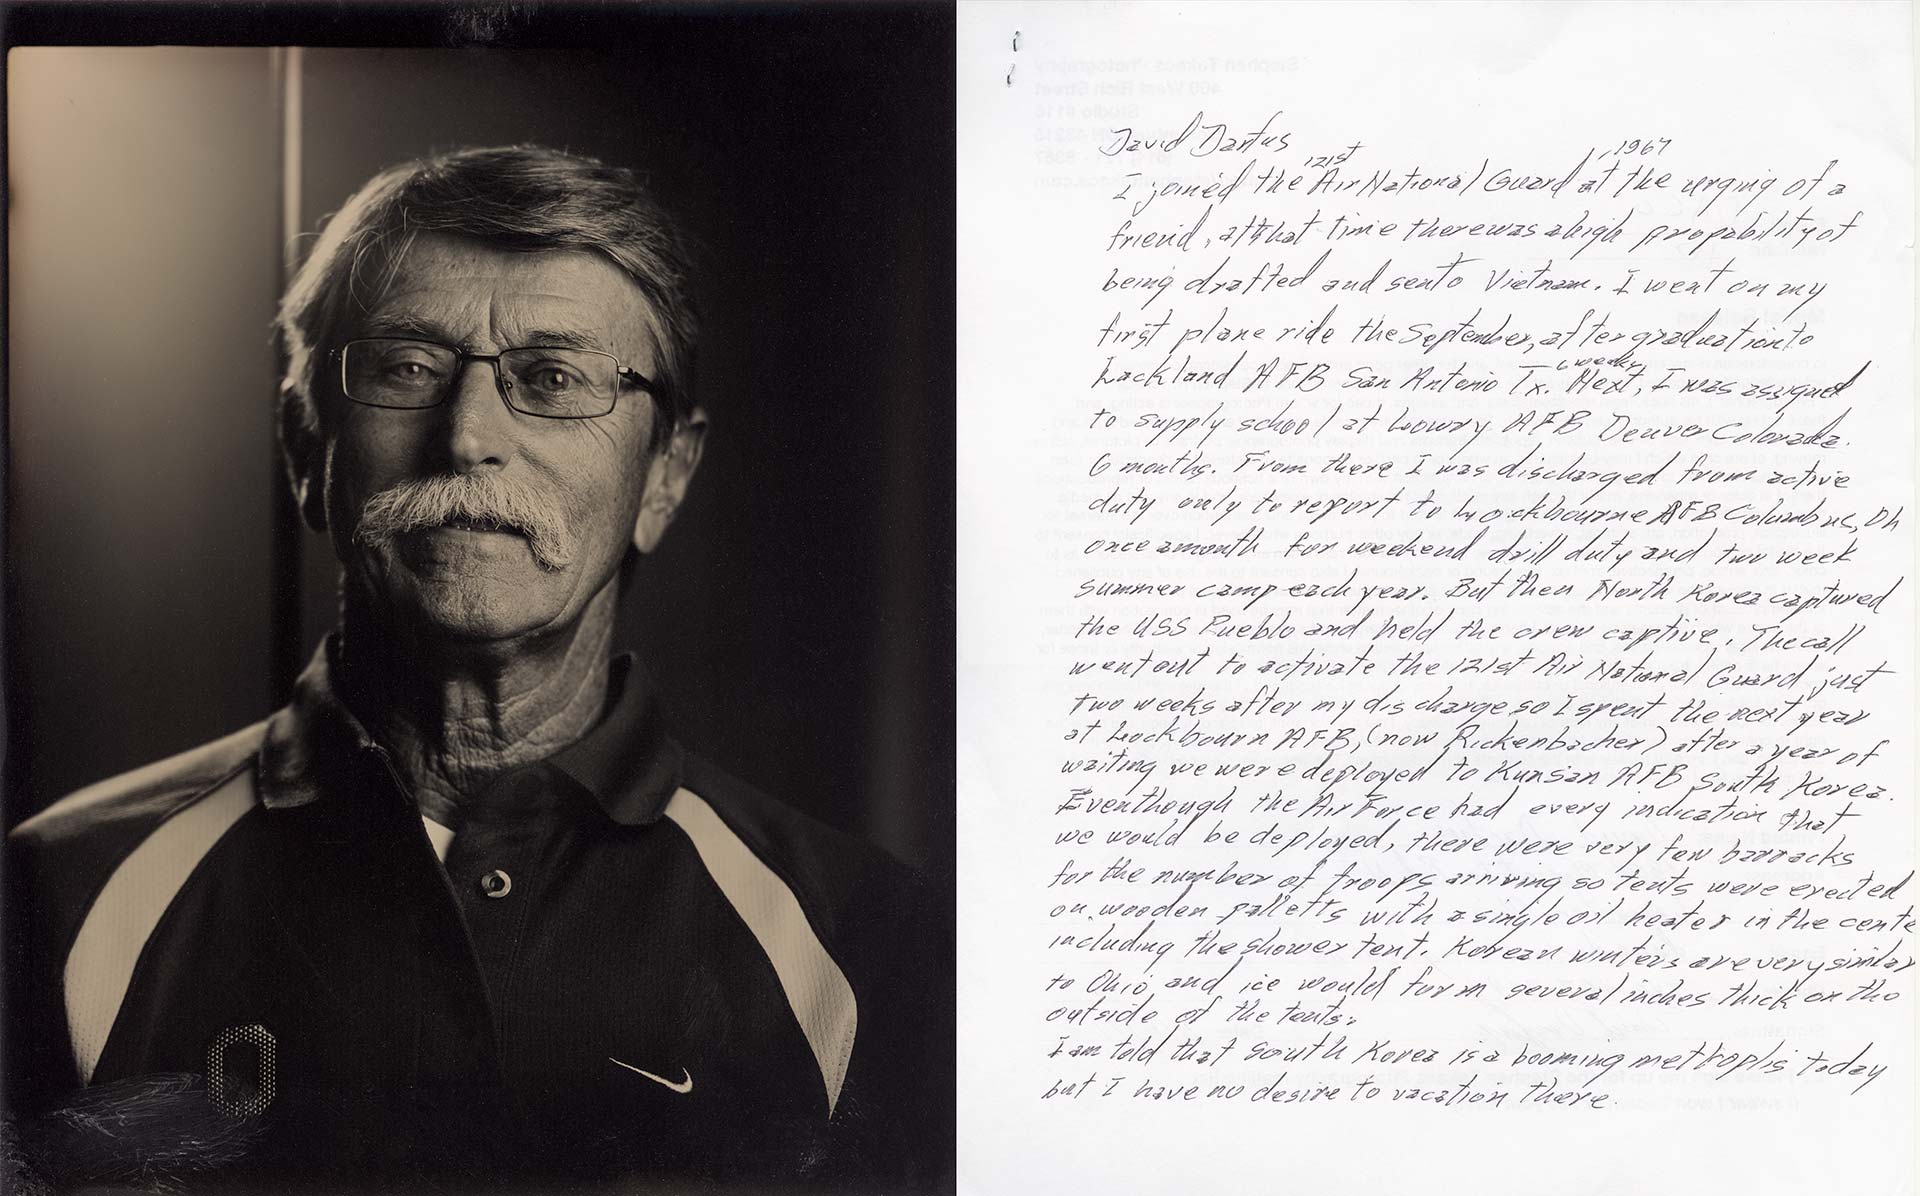 David Dantus
121st , 1967
I joined the Air National Guard at the urging of a
friend, at that time there was a high propability of
being drafted and sent to Vietnam. I went on my
first plane ride the September, after graduation to
6 weeks
Lackland AFB San Antonio Tx. Next, I was assigned
to supply school at Lowry AFB Denver Colorado.
6 months. From there I was discharged from active
duty only to report to Lockbourne AFB Columbus, Oh
once a month for weekend drill duty and two week
summer camp each year. But then North Korea captured
the USS Pueblo and held the crew captive. The call
went out to activate the 121st Air National Guard just
two weeks after my discharge so I spent the next year
at Lockbourn AFB, (now Rickenbacher) after a year of
waiting we were deployed to Kunsan AFB South Korea.
Eventhough the Air Force had every indication that
we would be deployed, there were very few barracks
for the number of troops arriving so tents were erected
on wooden palletts with a single oil heater in the cente
including the shower tent. Korean winters are very similar
to Ohio and ice would form several inches thick on the
outside of the tents.
I am told that South Korea is a booming metroplis today
but I have no desire to vacation there.